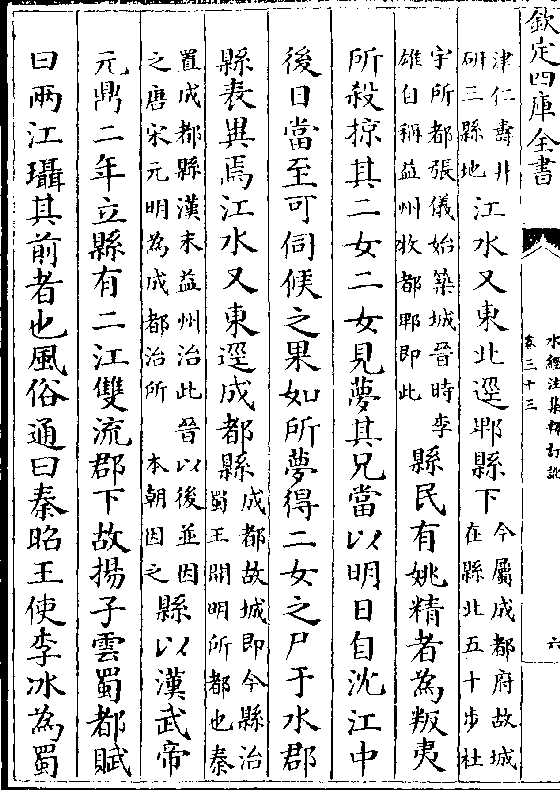 欽定四庫全書
水經注集釋訂訛
卷三十三
六
津仁壽井
研三縣地
江水又東北逕郫縣下
今屬成都府故城
在縣北五十步杜
宇所都張儀始築城晉時李
雄自稱益州牧都郫即此
縣民有姚精者為叛夷
所殺掠其二女二女見夢其兄當以明日自沈江中
後日當至可伺候之果如所夢得二女之尸于水郡
縣表異焉江水又東逕成都縣
成都故城即今縣治
蜀王開明所都也秦
置成都縣漢末益州治此晉以後並因
之唐宋元明為成都治所本朝因之
縣以漢武帝
元鼎二年立縣有二江雙流郡下故揚子雲蜀都賦
曰兩江珥其前者也風俗通曰秦昭王使李冰為蜀